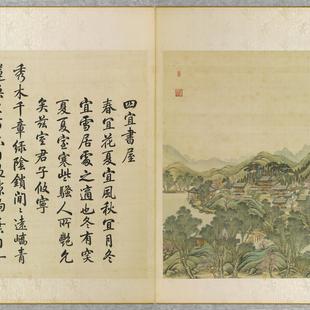 四宜書屋
春宜花夏宜風秋宜月冬
宜雪居處之適也冬有突
夏夏室寒些騷人所艷允
矣茲室君子攸寧
秀木千章綠陰鎖間〻遠嶠青